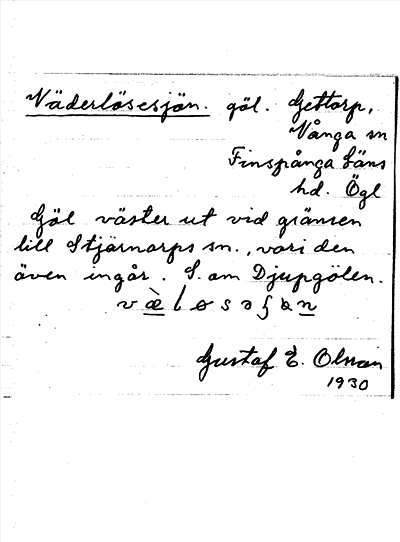 Väderlösesjön. göl. Gettorp,
Vånga sn
Finspånga läns
hd. Ögl
Göl väster ut vid gränsen
till Stjärnorps sn., vari den
även ingår. S. om Djupgölen.
Gustaf E. Olsson
1930